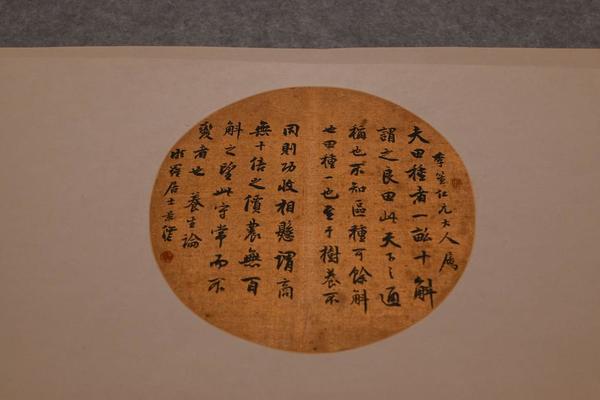 仁兄大人屬
夫田種者一畝十斛
謂之良田此天下之通
稱也不知區種可餘斛
也田種一也至于樹養不
同則功收相懸謂商
無十倍之價農無百
斛之望此守常而不
變者也 養生論
居士